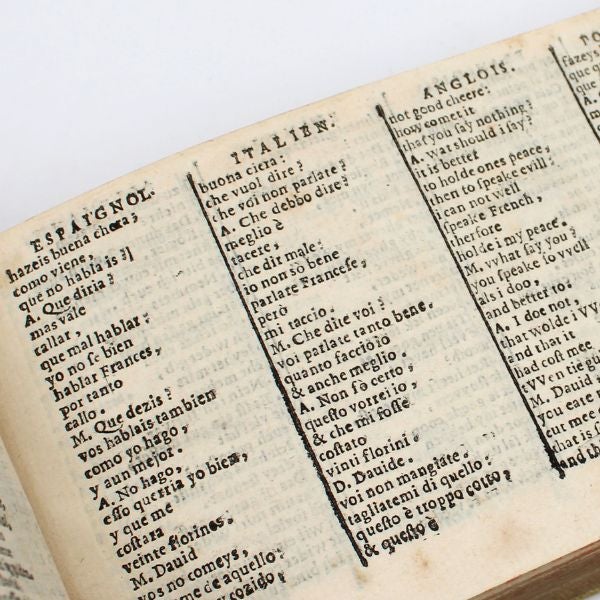 ESPAIGNOL.
hazeis buena chera,
como viene,
que no hablais?
A. Que diria?
mas vale
callar,
que mal hablar:
yo no se bien
hablar Frances,
por tanto
callo.
M. Que dezis?
vos hablais tambien
como yo hago,
y aun mejor.
A. No hago,
esso querria yo bien,
y que me
costara
veinte florines.
M. Dauid
vos no comeys,
me de aquello:
cozido,
ITALIEN.
buona ciera:
che vuol dire?
che voi non parlate?
A. Che debbo dire?
meglio è
tacere,
che dir male:
io non sò bene
parlare Francese,
però
mi taccio.
M. Che dite voi?
voi parlate tanto bene,
quanto faccio io
& anche meglio.
A. Non fò certo,
questo vorrei io,
& che mi fosse
costato
vinti florini.
D. Dauide.
voi non mangiate.
tagliatemi di quello:
questo è troppo cotto,
& questo è
ANGLOIS.
not good cheere:
how comet it
that you say nothing?
A. Wat should i say?
it is better
to holde ones peace,
then to speake evill:
i can not well
speake French,
therfore
holde i my peace.
M. what say you?
you speake so well
als i doo,
and better to:
A. I doe not,
that wolde i
and that it
had cost mee
M. Dauid
you eate
cut mee
that is
and th
fazeys
que
A.